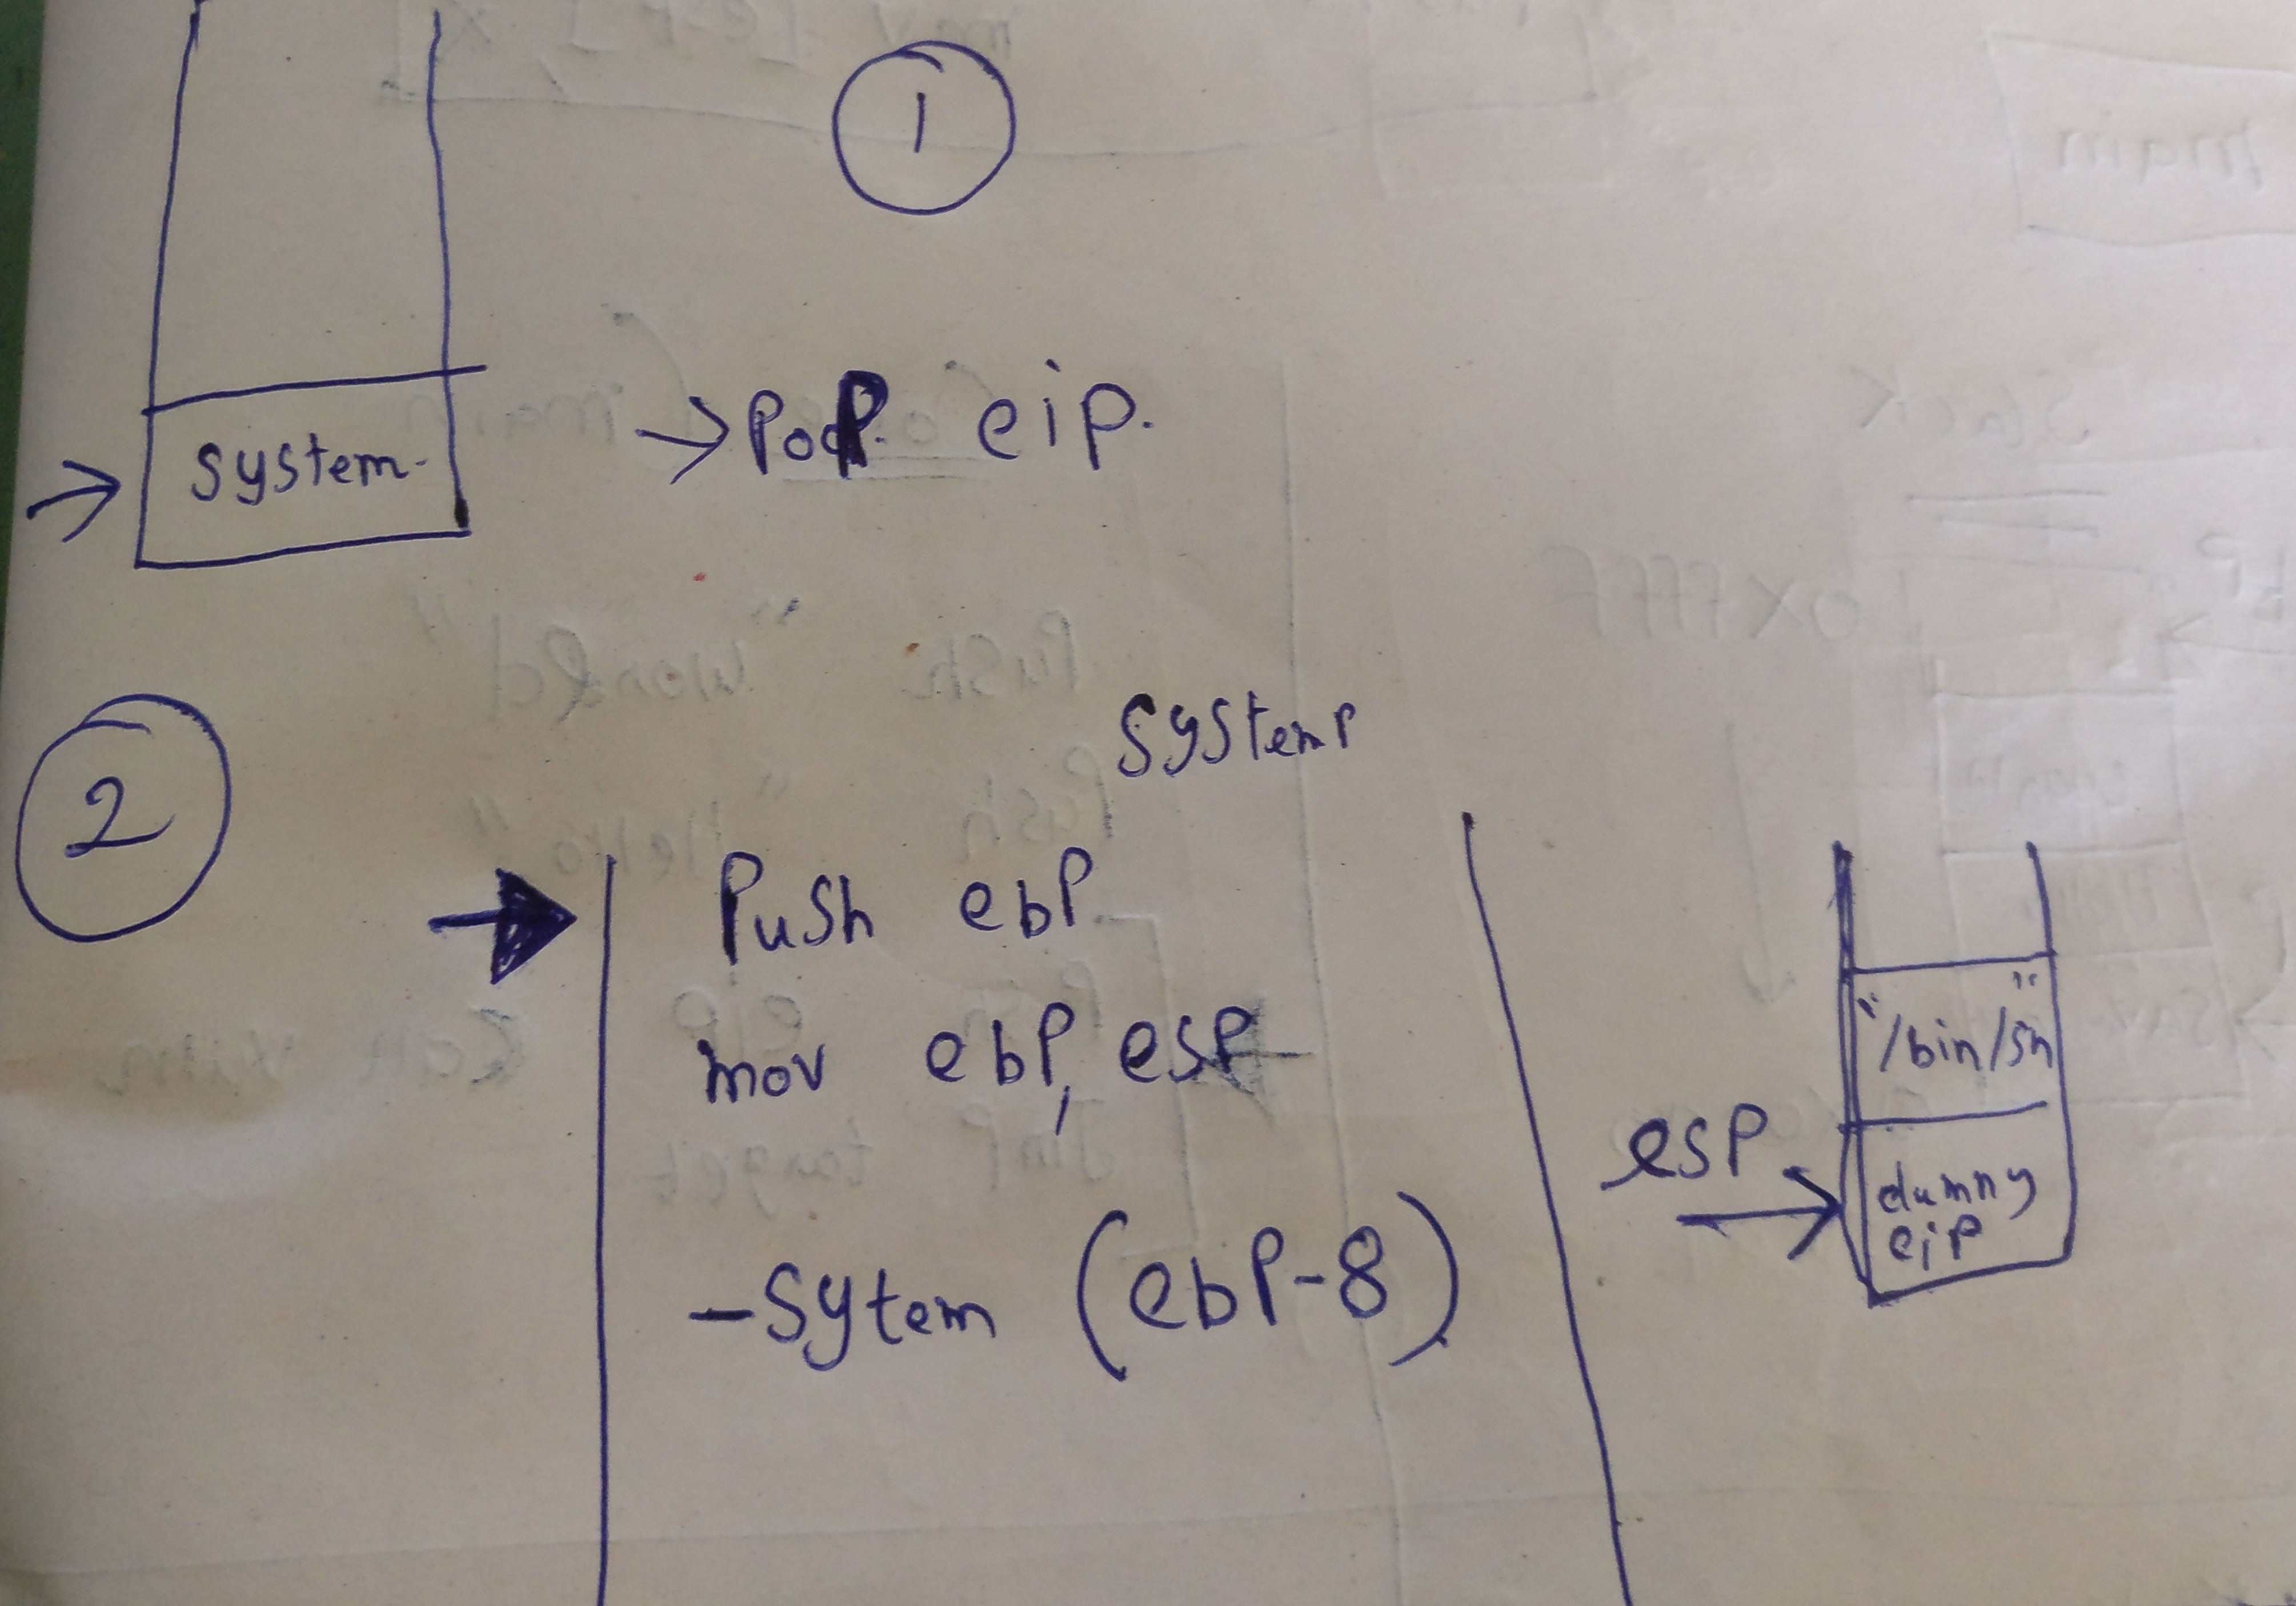 1
system.
→ PoP eip.
2
system
Push ebP
mov ebP, esP
- Sytem (ebP-8)
"/bin/sh"
esP
dumny
eiP